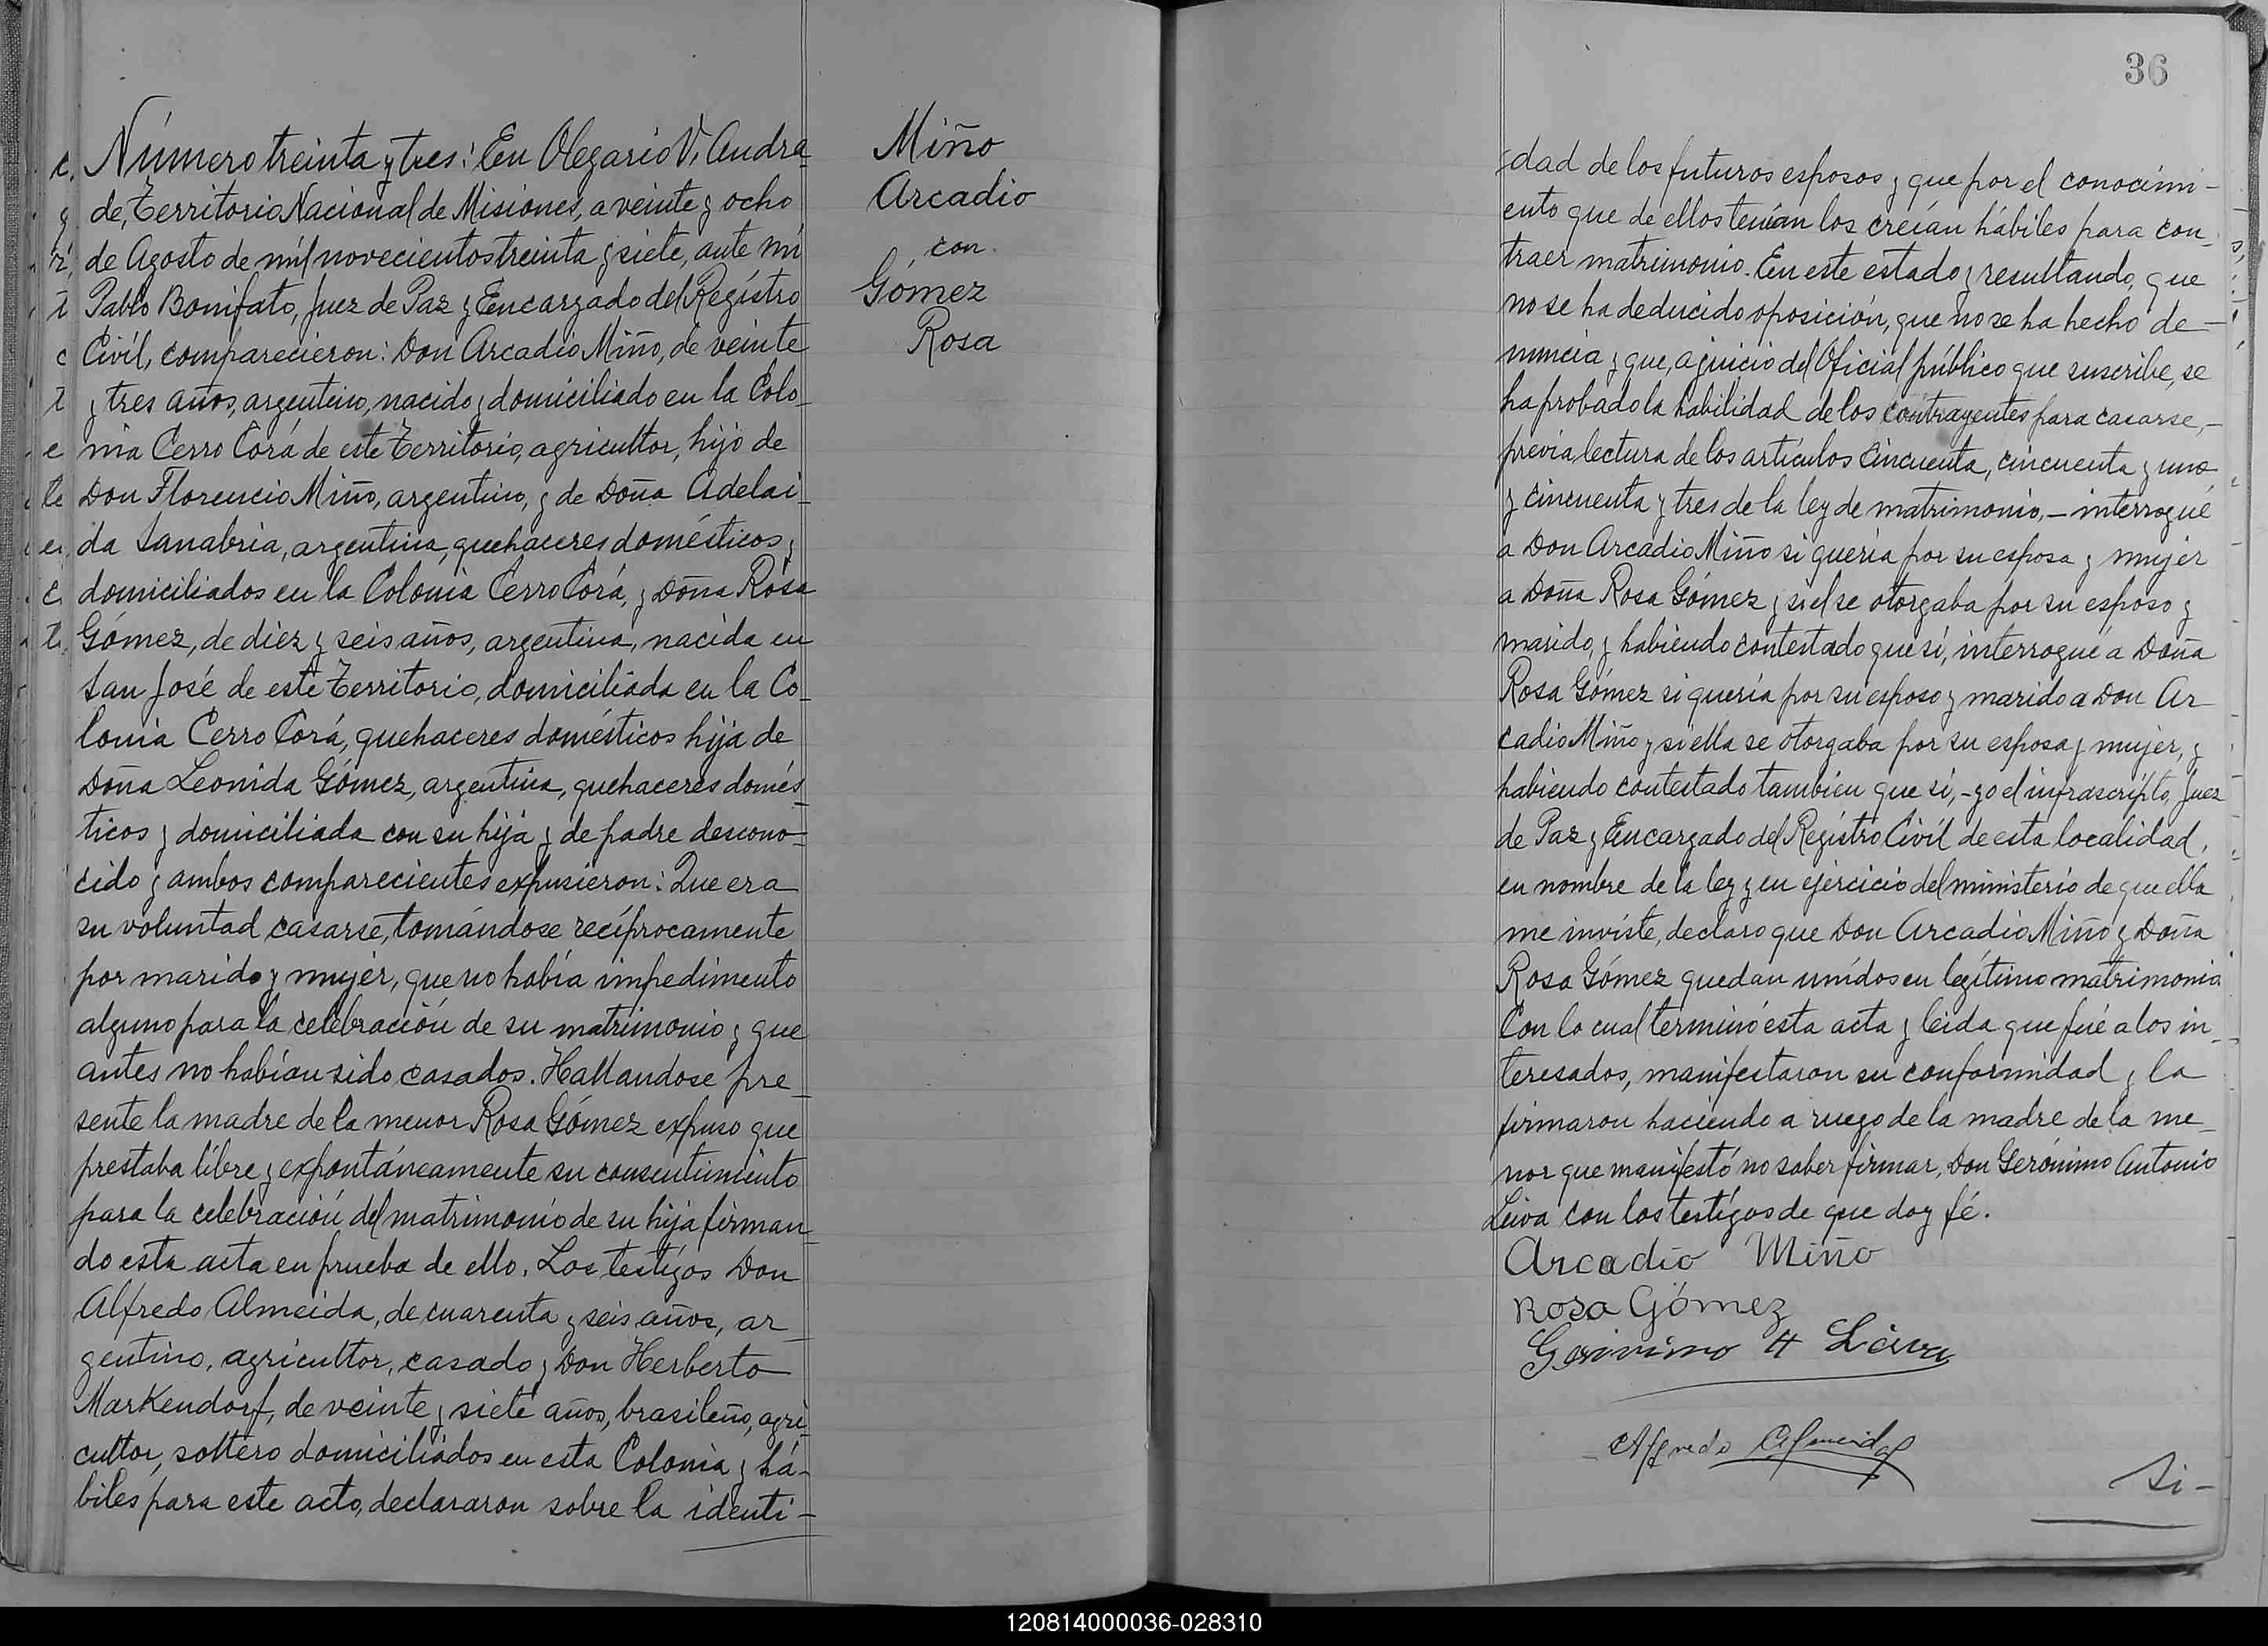 Número treinta y tres: En Olegario V. Andra-
de, Territorio Nacional de Misiones, a veinte y ocho
de Agosto de mil novecientos treinta y siete, ante mí
Pablo Bonifato, Juez de Paz y Encargado del Registro
Civíl, comparecieron: Don Arcadio Miño, de veinte
y tres años, argentino, nacido y domiciliado en la Colo-
nia Cerro Corá de este Territorio, agricultor, hijo de
Don Florencio Miño, argentino, y de Doña Adelai-
da Sanabria, argentina, quehaceres domésticos y
domiciliados en la Colonia Cerro Corá, y Doña Rosa
Gómez, de diez y seis años, argentina, nacida en
San José de este Territorio, domiciliada en la Co-
lonia Cerro Corá, quehaceres domésticos hija de
Doña Leonida Gómez, argentina, quehaceres domés-
ticos y domiciliada con su hija y de padre descono-
cido y ambos comparecientes expusieron: Que era
su voluntad casarse, tomándose recíprocamente
por marido y mujer, que no había impedimento
alguno para la celebración de su matrimonio y que
antes no habían sido casados. Hallandose pre-
sente la madre de la menor Rosa Gómez expuso que
prestaba líbre y expontáneamente su consentimiento
para la celebración del matrimonio de su hija firman-
do esta acta en prueba de ello. Los testígos Don
Alfredo Almeida, de cuarenta y seis años, ar-
gentino, agricultor, casado y Don Herberto
Markendorf, de veinte y siete años, brasileño, agri-
cultor, soltero domiciliados en esta Colonia y há-
biles para este acto, declararon sobre la identi-
Miño
Arcadio
con
Gómez
Rosa
36
dad de los futuros esposos y que por el conocimi-
ento que de ellos tenían los creían hábiles para con-
traer matrimonio. En este estado y resultando, que
no se ha deducido oposición, que no se ha hecho de-
nuncia y que, a juicio del Oficial público que suscribe, se
ha probado la habilidad de los contrayentes para casarse,-
previa lectura de los artículos cincuenta, cincuenta y uno
y cincuenta y tres de la ley de matrimonio,- interrogué
a Don Arcadio Miño si quería por su esposa y mujer
a Doña Rosa Gómez y si el se otorgaba por su esposo y
marido, y habiendo contestado que sí, interrogué a Doña
Rosa Gómez si quería por su esposo y marido a Don Ar
cadio Miño y si ella se otorgaba por su esposa y mujer, y
habiendo contestado tambien que sí,- yo el infrascripto, Juez
de Paz y Encargado del Registro Civíl de esta localidad,
en nombre de la ley y en ejercicio del ministerio de que ella
me inviste, declaro que Don Arcadio Miño y Doña
Rosa Gómez quedan unídos en legítimo matrimonio.
Con lo cual terminó esta acta y leida que fué a los in-
teresados, manifestaron su conformidad y la
firmaron haciendo a ruego de la madre de la me-
nor que manifestó no saber firmar, Don Gerónimo Antonio
Leiva con los testígos de que doy fé.
Arcadio Miño
Rosa Gómez
Leiva
Alfredo Almeida
Si-
120814000036-028310